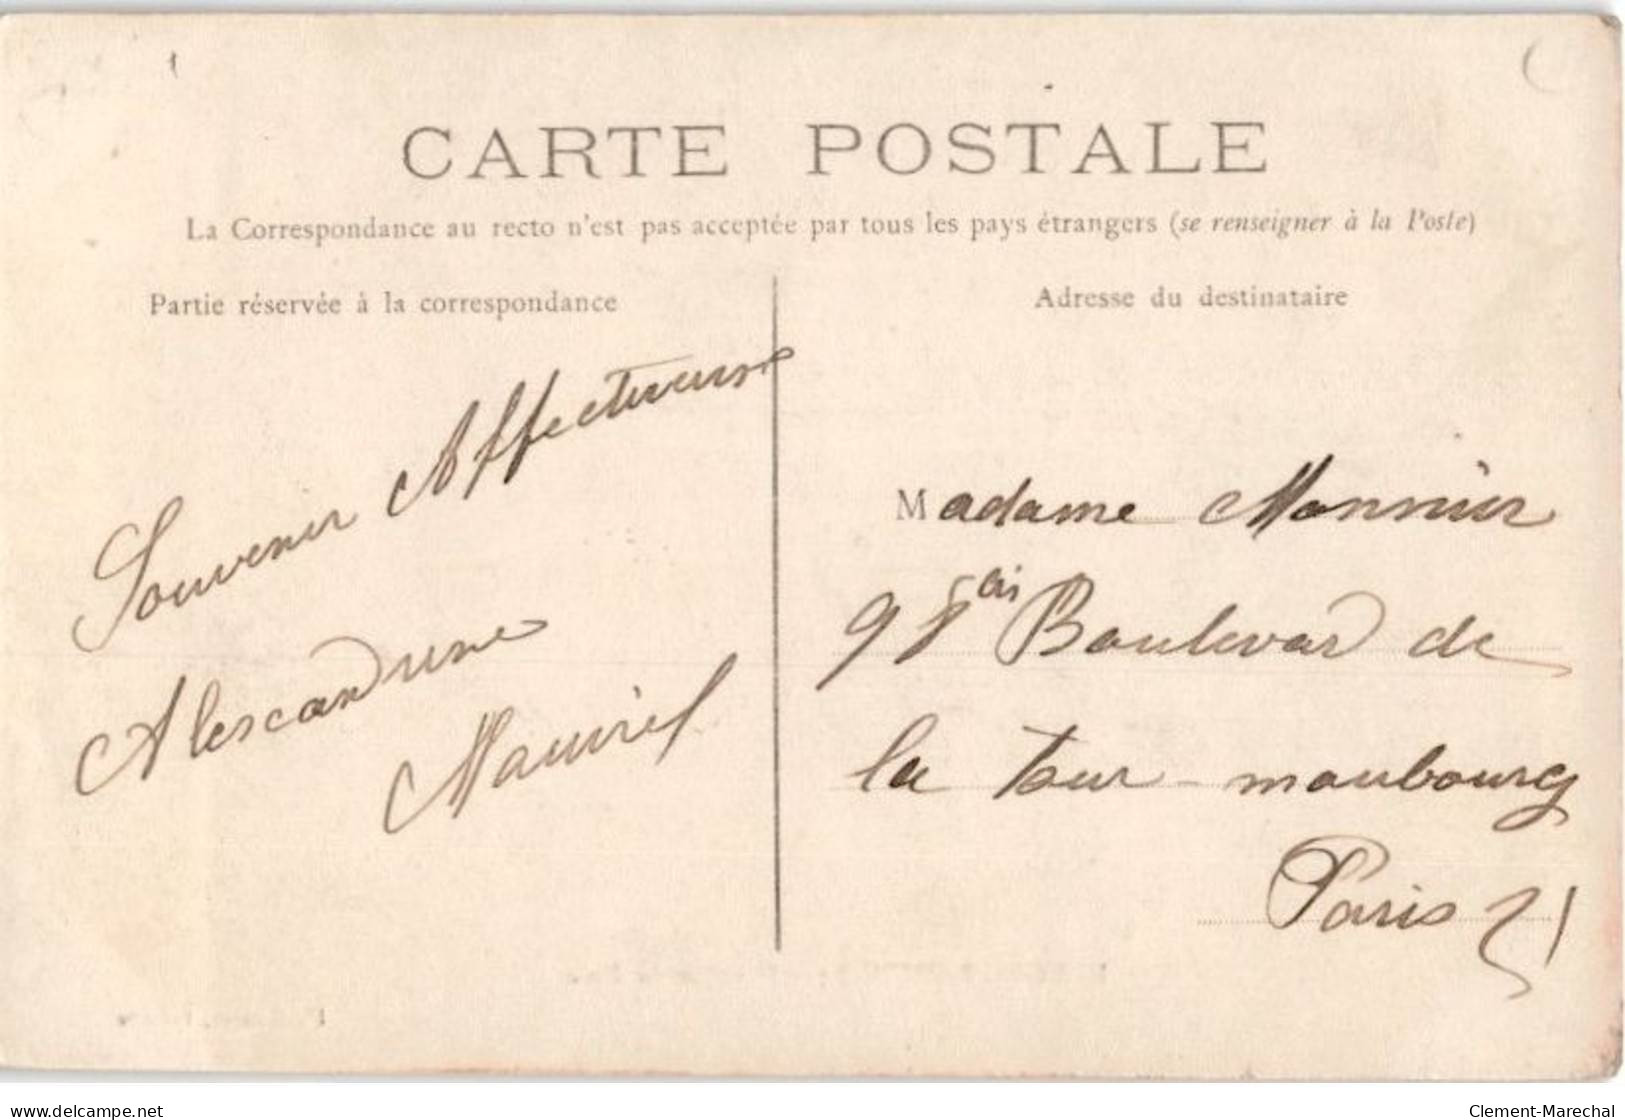 CARTE POSTALE
La Correspondance au recto n'est pas acceptée par tous les pays étrangers (se renseigner à la Poste)
Partie réservée à la correspondance
Souvenir Affectueuse
Alescandrine
Adresse du destinataire
Madame Monnier
Boulevar de
la tour-maubourg
Paris
www.delcampe.net
Clement-Marechal